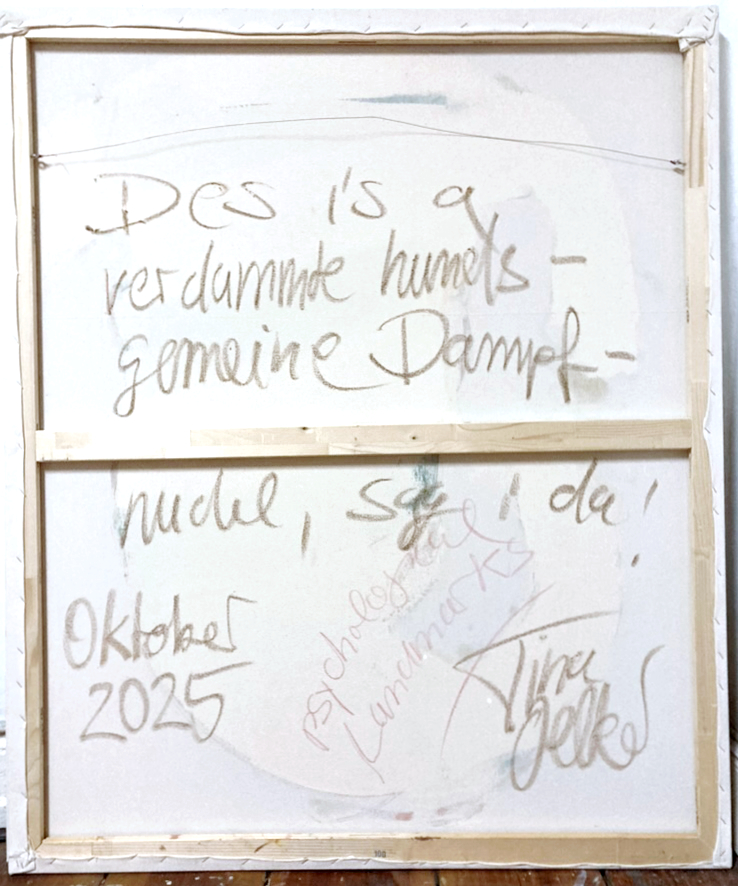 Des is a
verdammte hunds-
gemeine Dampf-
nudel, sg i da!
Oktober
2025
psychological
Landmarks
Tina
Oelker
100